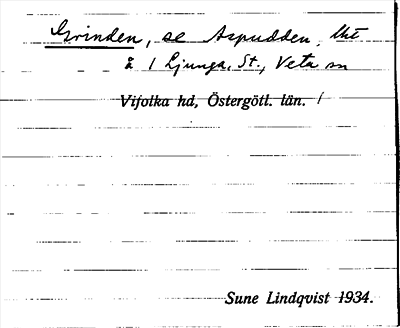 Grinden, se Aspudden, lht
å 1 Ljunga, St., Veta sn
Vifolka hd, Östergötl. län. /
Sune Lindqvist 1934.